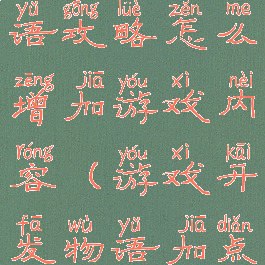 yǔ gōng lüè zěn me
语攻略怎么
zēng jiā yóu xì nèi
增加游戏内
róng yóu xì kāi
容(游戏开
fā wù yǔ jiā diǎn
发物语加点